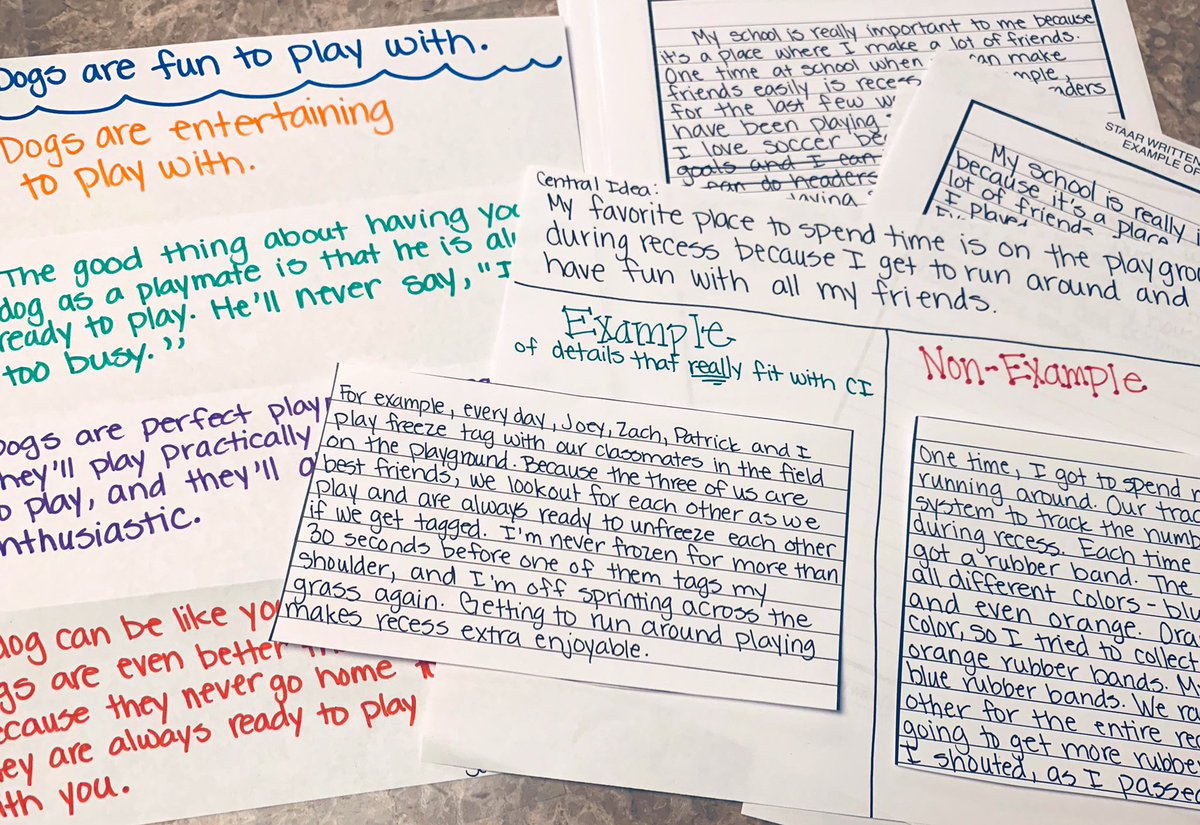 Dogs are fun to play with.
Dogs are entertaining
to play with.
The good thing about having
dog as a playmate is that he is
ready to play. He'll never say, "I
too busy."
Dogs are perfect
they'll play practically
to play, and they'll
enthusiastic.
dog can be like
are even better
because they never go home
they are always ready to play
with you.
My school is really important to me because
it's a place where I make a lot of friends.
One time at school when can make
friends easily is recess
for the last few
have been playing
I love soccer
goals and I can
can do headers
STAAR WRITTEN
EXAMPLE OF
My school is really
because it's a place
lot of friends
I played
Central Idea:
My favorite place to spend time is on the
during recess because I get to run around and
have fun with all my friends.
Example
of details that really fit with CI
For example, every day, Joey, Zach, Patrick and I
play freeze tag with our classmates in the field
on the playground. Because the three of us are
best friends, we lookout for each other as we
play and are always ready to unfreeze each other
if we get tagged. I'm never frozen for more than
30 seconds before one of them tags my
shoulder, and I'm off sprinting across the
grass again. Getting to run around playing
makes recess extra enjoyable.
Non-Example
One time, I got to spend
running around. Our
system to track the
during recess. Each time
got a rubber band. The
all different colors -
and even orange.
color, so I tried to collect
orange rubber bands.
blue rubber bands. We
other for the entire
going to get more
I shouted, as I passed